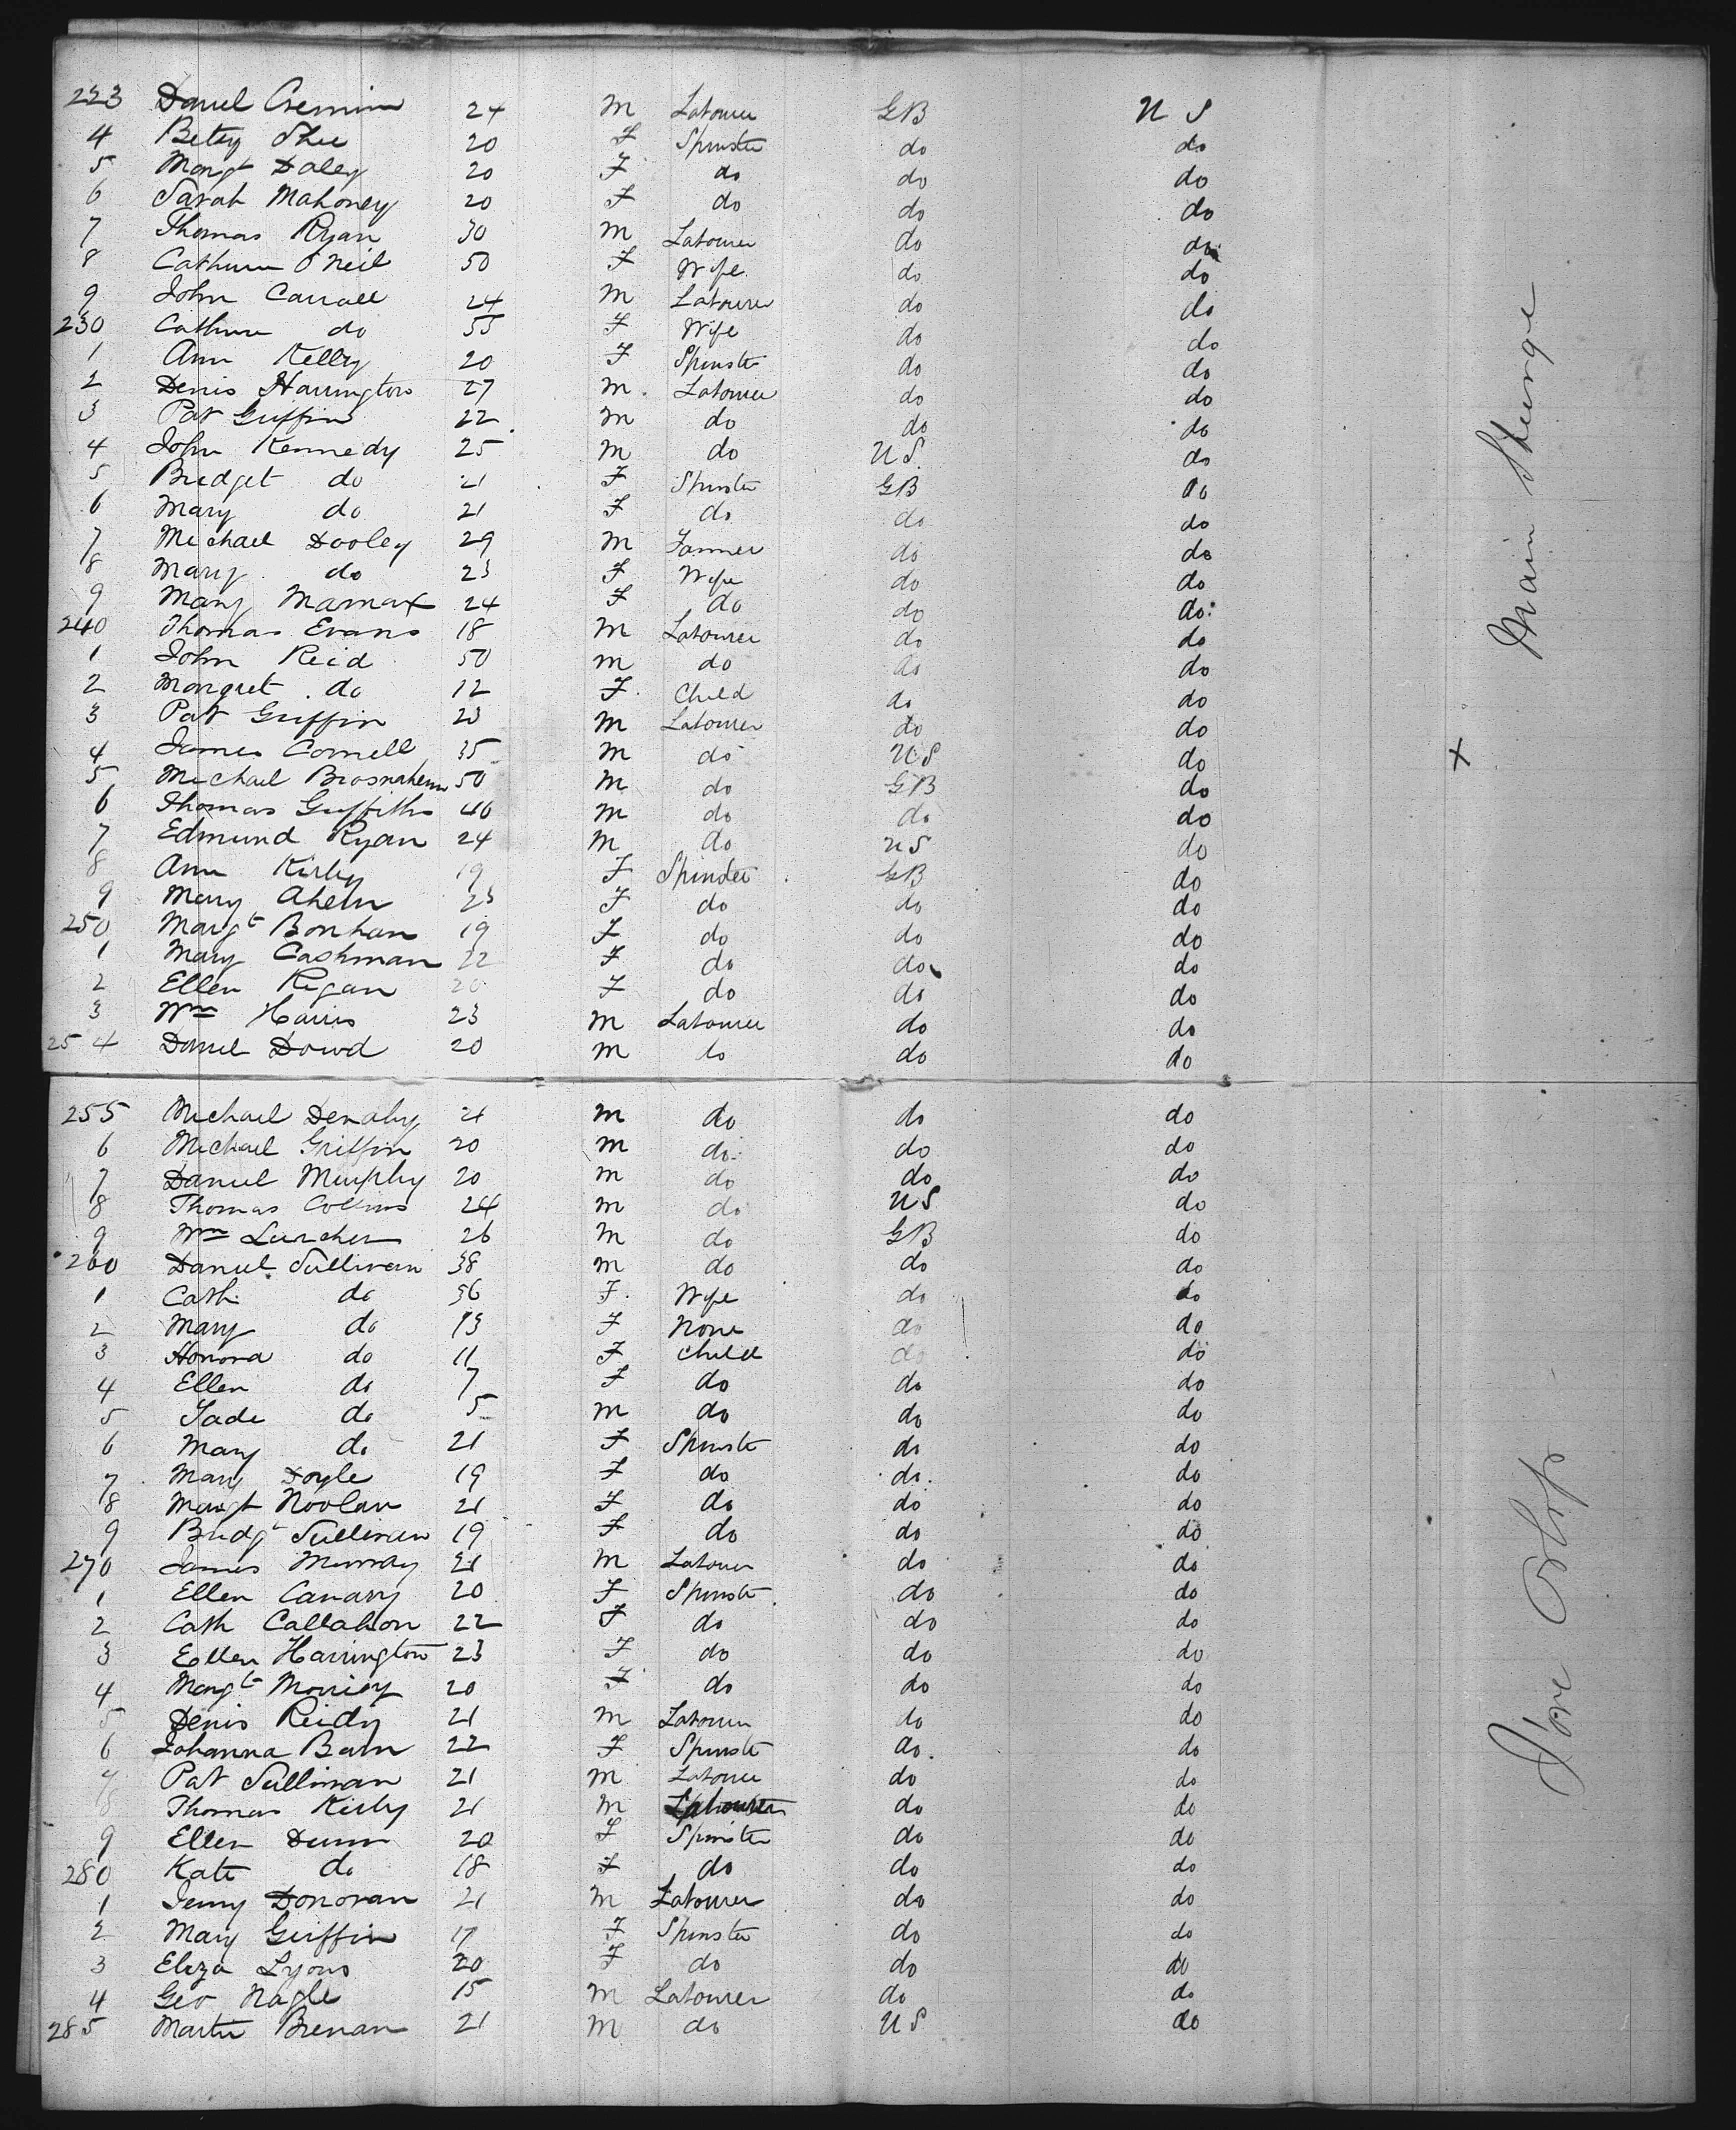 223 Daniel Cremin 24 M Labourer GB U S
4 Betsy Shee 20 F Spinster do do
5 Margt Daley 20 F do do do
6 Sarah Mahoney 20 F do do do
7 Thomas Ryan 30 M Labourer do do
8 Catherine O'Neil 50 F Wife do do
9 John Carroll 24 M Labourer do do
230 Catherine do 55 F Wife do do
1 Ann Kelly 20 F Spinster do do
2 Denis Harrington 27 M Labourer do do
3 Pat Griffin 22 M do do do
4 John Kennedy 25 M do U S. do
5 Bridget do 21 F Spinster GB do
6 Mary do 21 F do do do
7 Michael Dooley 29 M Farmer do do
8 Mary do 23 F Wife do do
9 Mary 24 F do do do
240 Thomas Evans 18 M Labourer do do
1 John Reid 50 M do do do
2 Margret do 12 F Child do do
3 Pat Griffin 23 M Labourer do do
4 James Cornell 35 M do U S do
5 Michael Brosnahem 50 M do GB do
6 Thomas Griffiths 40 M do do do
7 Edmund Ryan 24 M do U S do
8 Ann Kirby 19 F Spinster GB do
9 Mary Ahern 23 F do do do
250 Margt Bonhan 19 F do do do
1 Mary Cashman 22 F do do do
2 Ellen Rigan 20 F do do do
3 Wm Harris 23 M Labourer do do
254 Daniel Dowd 20 M do do do
255 Michael Denahy 21 M do do do
6 Michael Griffin 20 M do do do
7 Daniel Murphy 20 M do do do
8 Thomas Collins 24 M do U S do
9 Wm 26 M do GB do
260 Daniel Sullivan 38 M do do do
1 Cath do 36 F Wife do do
2 Mary do 13 F None do do
3 Honora do 11 F Child do do
4 Ellen do 7 F do do do
5 Jade do 5 M do do do
6 Mary do 21 F Spinster do do
7 Mary Doyle 19 F do do do
8 Margt Noolan 21 F do do do
9 Bridgt Sullivan 19 F do do do
270 James Murray 21 M Labourer do do
1 Ellen Canary 20 F Spinster do do
2 Cath Callahon 22 F do do do
3 Ellen Harrington 23 F do do do
4 Margt 20 F do do do
5 Denis Reidy 21 M Labourer do do
6 Johanna 22 F Spinster do do
7 Pat Sullivan 21 M Labourer do do
8 Thomas Kirby 21 M Labourer do do
9 Ellen Dunn 20 F Spinster do do
280 Kate do 18 F do do do
1 Jerry Donovan 21 M Labourer do do
2 Mary Griffin 17 F Spinster do do
3 Eliza Lyons 20 F do do do
4 Geo Nagle 15 M Labourer do do
285 Martin Brenan 21 M do U S do
Main Steerage
+
Fore